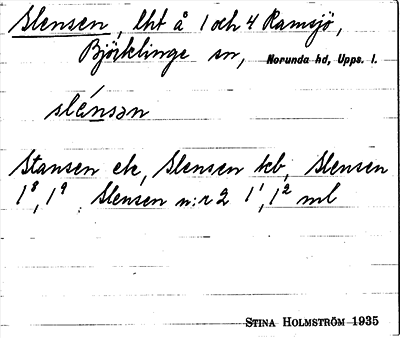 Slensen, lht å 1 och 4 Ramsjö,
Björklinge sn, Norunda hd, Upps. l.
slénsən
Stansen ek, Slensen kcb, Slensen
1⁸, 1⁹, Slensen n:r 2 1¹, 1² ml
STINA HOLMSTRÖM 1935